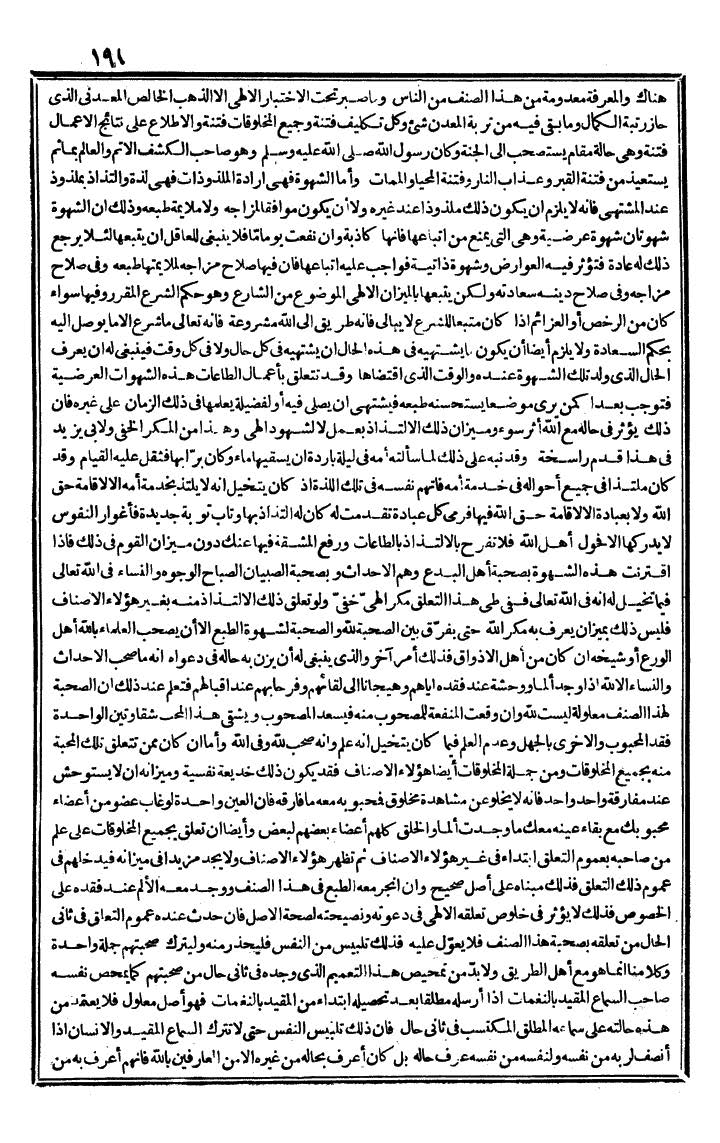 ١٩١
هناك والمعرفة معدومة من هذا الصنف من الناس وما صبر تحت الاختبار الالهى الا الذهب الخالص المعدنى الذى
حاز رتبة الكمال وما بقى فيه من تربة المعدن شئ وكل تكليف فتنة وجميع المخلوقات فتنة والاطلاع على نتائج الاعمال
فتنة وهى حالة مقام يستصحب الى الجنة وكان رسول الله صلى الله عليه وسلم وهو صاحب الكشف الاتم والعالم بما ثم
يستعيذ من فتنة القبر وعذاب النار وفتنة المحيا والممات وأما الشهوة فهى ارادة الملذوذات فهى لذة والتذاذ بملذوذ
عند المشتهى فانه لا يلزم ان يكون ذلك ملذوذا عند غيره ولا أن يكون موافقا لمزاجه ولا ملايمة طبعه وذلك ان الشهوة
شهوتان شهوة عرضية وهى التى يمنع من اتباعها فانها كاذبة وان نفعت يوما ما فلا ينبغى للعاقل ان يتبعها لئلا يرجع
ذلك له عادة فتؤثر فيه العوارض وشهوة ذاتية فواجب عليه اتباعها فان فيها صلاح مزاجه لملايمتها طبعه وفى صلاح
مزاجه وفى صلاح دينه سعادته ولكن يتبعها بالميزان الالهى الموضوع من الشارع وهو حكم الشرع المقرر وفيها سواء
كان من الرخص أو العزائم اذا كان متبعا للشرع لا يبالى فانه طريق الى الله مشروعة فانه تعالى ما شرع الا ما يوصل اليه
بحكم السعادة ولا يلزم أيضا أن يكون ما يشتهيه فى هذه الحال ان يشتهيه فى كل حال ولا فى كل وقت فينبغى له ان يعرف
الحال الذى ولد تلك الشهوة عنده والوقت الذى اقتضاها وقد تتعلق بأعمال الطاعات هذه الشهوات العرضية
فتوجب بعدا كمن يرى موضعا يستحسنه طبعه فيشتهى ان يصلى فيه أو لفضيلة يعلمها فى ذلك الزمان على غيره فان
ذلك يؤثر فى حاله مع الله أثر سوء وميزان ذلك الالتذاذ بعمل لا لشهود الهى وهذا من المكر الخفى ولابى يزيد
فى هذا قدم راسخة وقد نبه على ذلك لما سألته أمه فى ليلة باردة ان يسقيها ماء وكان برّا بها فثقل عليه القيام وقد
كان ملتذا فى جميع أحواله فى خدمة أمه فاتهم نفسه فى تلك اللذة اذ كان يتخيل انه لا يلتذ بخدمة أمه الا لاقامة حق
الله ولا بعبادة الا لاقامة حق الله فيها فرمى كل عبادة تقدمت له كان له التذاذ بها وتاب توبة جديدة فأغوار النفوس
لا يدركها الا فحول أهل الله فلا تفرح بالالتذاذ بالطاعات ورفع المشقة فيها عنك دون ميزان القوم فى ذلك فاذا
اقترنت هذه الشهوة بصحبة أهل البدع وهم الاحداث وبصحبة الصبيان الصباح الوجوه والنساء فى الله تعالى
فيما يتخيل له انه فى الله تعالى ففى طى هذا التعلق مكر الهى خفى ولو تعلق ذلك الالتذاذ منه بغير هؤلاء الاصناف
فليس ذلك بميزان يعرف به مكر الله حتى يفرّق بين الصحبة لله والصحبة لشهوة الطبع الا أن يصحب العلماء بالله أهل
الورع أو شيخه ان كان من أهل الاذواق فذلك أمر آخر والذى ينبغى له أن يزن به حاله فى دعواه انه ما صحب الاحداث
والنساء الا لله اذا وجد ألما ووحشة عند فقده اياهم وهيجانا الى لقائهم وفرحا بهم عند اقبالهم فتعلم عند ذلك ان الصحبة
لهذا الصنف معلولة ليست لله وان وقعت المنفعة للمصحوب منه فيسعد المصحوب ويشقى هذا المحب شقاوتين الواحدة
فقد المحبوب والاخرى بالجهل وعدم العلم فيما كان يتخيل انه علم وانه صحب لله وفى الله وأما ان كان ممن تتعلق تلك المحبة
منه بجميع المخلوقات ومن جملة المخلوقات أيضا هؤلاء الاصناف فقد يكون ذلك خديعة نفسية وميزانه ان لا يستوحش
عند مفارقة واحد واحد فانه لا يخلو عن مشاهدة مخلوق فمحبوبه معه ما فارقه فان العين واحدة لو غاب عضو من أعضاء
محبوبك مع بقاء عينه معك ما وجدت ألما والخلق كلهم أعضاء بعضهم لبعض وأيضا ان تعلق بجميع المخلوقات على علم
من صاحبه بعموم التعلق ابتداء فى غير هؤلاء الاصناف ثم تظهر هؤلاء الاصناف ولا يجد مزيدا فى ميزانه فيدخلهم فى
عموم ذلك التعلق فذلك مبناه على أصل صحيح وان انجر معه الطبع فى هذا الصنف ووجد معه الألم عند فقده على
الخصوص فذلك لا يؤثر فى خلوص تعلقه الالهى فى دعوته ونصيحته لصحة الاصل فان حدث عنده عموم التعلق فى ثانى
الحال من تعلقه بصحبة هذا الصنف فلا يعوّل عليه فذلك تلبيس من النفس فليحذر منه وليترك صحبتهم جملة واحدة
وكلامنا انما هو مع أهل الطريق ولا بدّ من تمحيص هذا التعميم الذى وجده فى ثانى حال من صحبتهم كما يمحص نفسه
صاحب السماع المقيد بالنغمات اذا أرسله مطلقا بعد تحصيله ابتداء من المقيد بالنغمات فهو أصل معلول فلا يعتمد من
هذه حالته على سماعه المطلق المكتسب فى ثانى حال فان ذلك تلبيس النفس حتى لا تترك السماع المقيد والانسان اذا
أنصف ربه من نفسه ولنفسه من نفسه عرف حاله بل كان أعرف بحاله من غيره الا من العارفين بالله فانهم أعرف به من